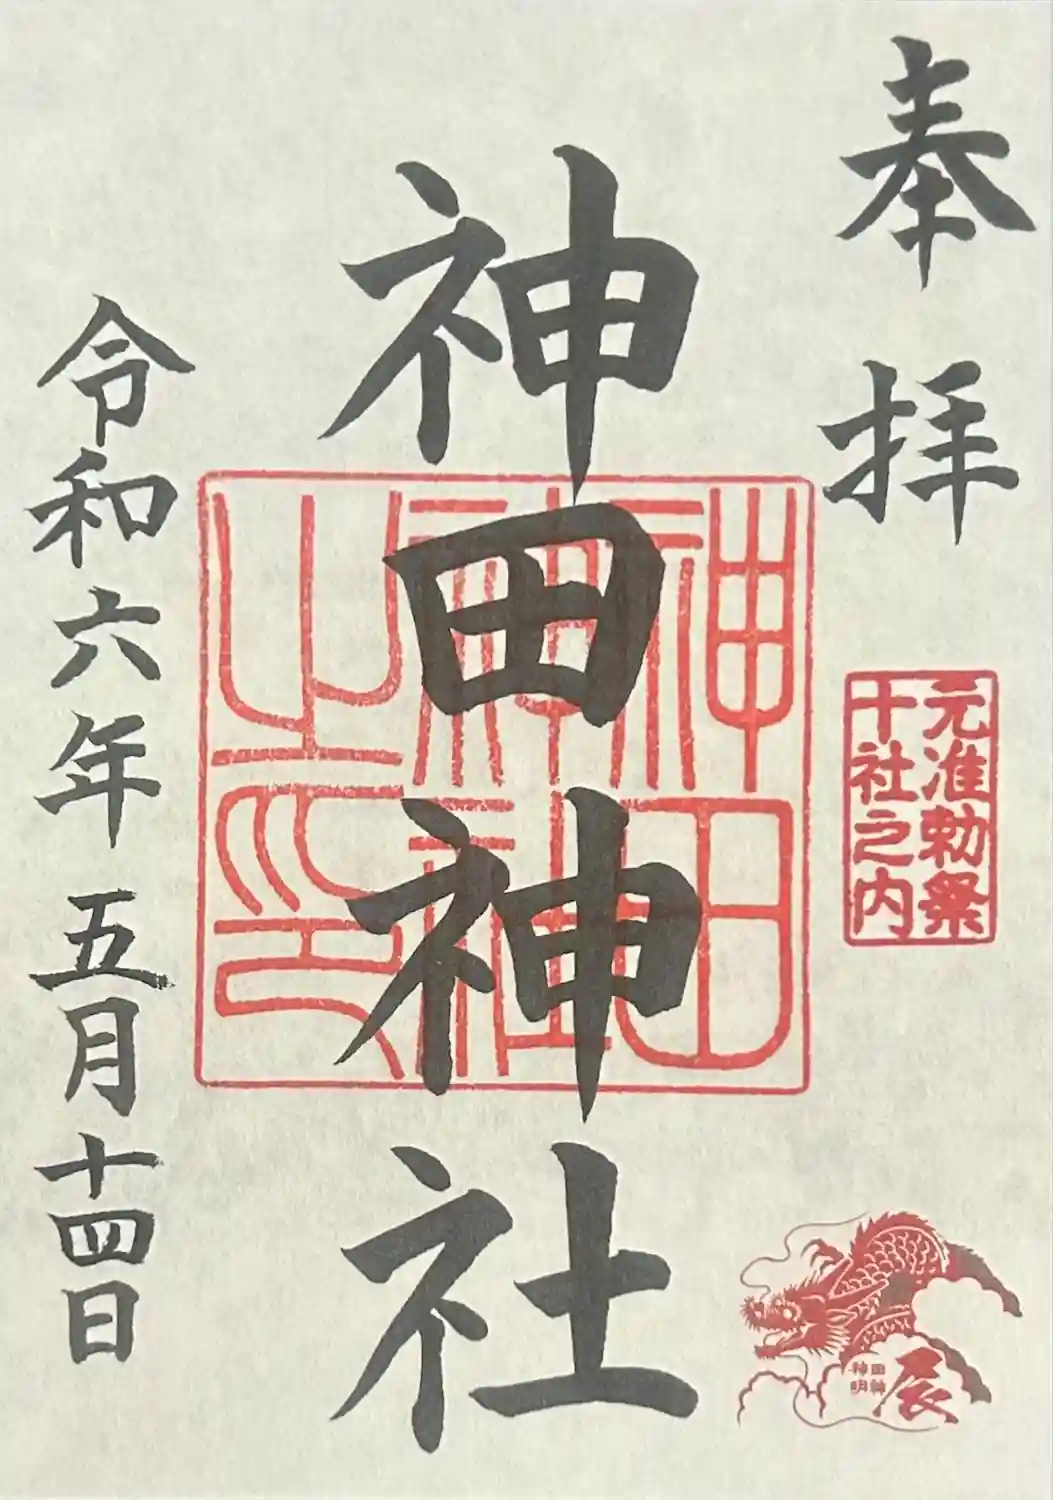 奉拝
元准勅祭
十社之内
神田神社
神田神社之印
令和六年五月十四日
辰
神田
明神